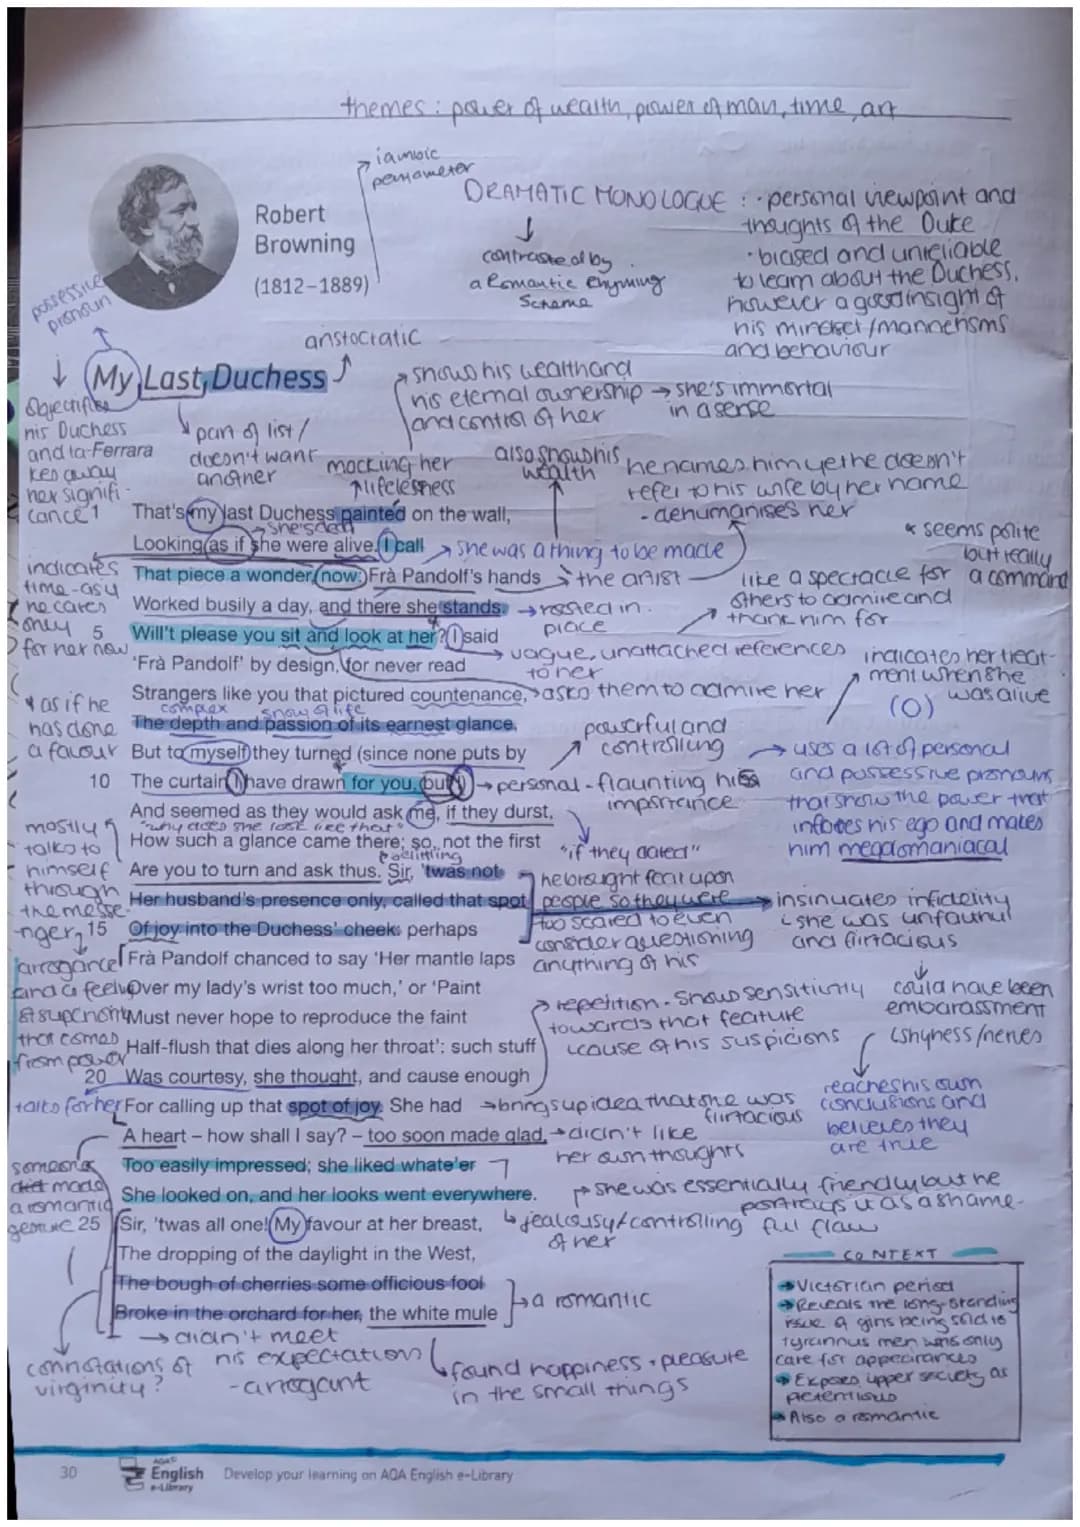 themes : power of wealth, power of man, time, art
iambic
pentameter
DRAMATIC MONOLOGUE : · personal viewpoint and
thoughts of the Duke
· biased and unreliable
to learn about the Duchess,
however a good insight of
his mindset/mannerisms
and behaviour
contrasted by
a Romantic rhyming
Scheme
Robert
Browning
(1812–1889)
possessive
pronoun
aristocratic
My Last Duchess
objectifies
his Duchess
and ta-Ferrara
kes away
her signifi-
cance
part of list/
doesn't want
another
shows his wealth and
his eternal ownership → she's immortal
and control of her in a sense
mocking her
lifelessness
also shows his
wealth
he names him yet he doesn't
refer to his wife by her name
- dehumanises her
1 That's my last Duchess painted on the wall,
she's dead
Looking as if she were alive. I call
she was a thing to be made
* seems polite
but really
a command
indicates
time - as if
he cares
only
for her now
That piece a wonder, now: Frà Pandolf's hands
→ the artist
like a spectacle for
others to admire and
thank him for
Worked busily a day, and there she stands.
→ rooted in
place
5 Will't please you sit and look at her? I said
vague, unattached references
to her
'Frà Pandolf' by design, for never read
indicates her treat-
ment when she
was alive
(O)
Strangers like you that pictured countenance,
asks them to admire her
* as if he
has done
a favour
complex show of life
The depth and passion of its earnest glance,
But to myself they turned (since none puts by
powerful and
controlling
10 The curtain I have drawn for you, but I)
→ personal - flaunting his
importrance
→ uses a lot of personal
and possessive pronouns
that show the power that
infates his ego and makes
him megalomaniacal
And seemed as they would ask me, if they durst,
"why does she look like that"
How such a glance came there; so, not the first
"if they dared"
belittling
Are you to turn and ask thus. Sir, 'twas not
he brought fear upon
people so they were
too scared to even
consider questioning
anything of his
mostly
talks to
himself
through
the messe-
nger
Her husband's presence only, called that spot
→ insinuates infidelity
she was unfaithful
and flirtacious
15 Of joy into the Duchess' cheek: perhaps
could have been
embarassment
shyness/nerves
Frà Pandolf chanced to say 'Her mantle laps
arrogance
Over my lady's wrist too much,' or 'Paint
Must never hope to reproduce the faint
that comes
from power
→ repetition - shows sensitivity
towards that feature
cause of his suspicions
Half-flush that dies along her throat': such stuff
20 Was courtesy, she thought, and cause enough
reaches his own
conclusions and
believes they
are true
talks for her
For calling up that spot of joy. She had
→ brings up idea that she was
flirtacious
A heart – how shall I say? – too soon made glad,
→ didn't like
her own thoughts
Too easily impressed; she liked whate'er
She looked on, and her looks went everywhere.
she was essentially friendly but he
portrays it as a shame-
ful flaw
jealousy/controlling
of her
made
a romantic
gesture
25 Sir, 'twas all one! My favour at her breast,
The dropping of the daylight in the West,
The bough of cherries some officious fool
Broke in the orchard for her, the white mule
→ a romantic
→ didn't meet
his expectation
- arrogant
connotations of
virginity?
found happiness + pleasure
in the small things
CONTEXT
→ Victorian period
→ Reveals the long-standing
issue of girls being sold to
tyrannus men who only
care for appearances
→ Exposes upper society as
pretentious
→ Also a romantic
30
AQA
English
e-Library
Develop your learning on AQA English e-Library